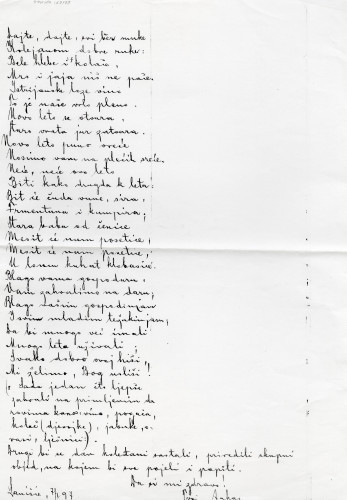 Dajte, dajte, svi bez muke
Kolejanom dobre ruke:
Bele hlebe i kolače,
Mes i jaja niš ne paše.
Istrijanske loze vino
To je naše vrlo pleno.
Novo leto se otvara,
Staro vrata jur zatvara.
Novo leto puno sreće
Nosimo vam na plećih sreće.
Neće, neće ovo leto
Biti kako drugda k leta:
Bit će čuda vune, sira,
Frmentuna i kumpira;
Stara baba od čenice
Mesit će nam posetice,
Mesit će nam posetice,
U loncu kuhat klobasice.
Blago vama gospodaru,
Vam zahvalimo na daru,
Blago vašim gospodinjam
I svim mladim težakinjam,
Da bi mnogo već imali
Mnoga leta uživali;
Svako dobro svoj hiši,
Mi želimo, Bog usliši!
(o dade jedan što ljepše
zahvali na primljenim da
rovima kano: vino, pogača,
kolač (djevojke), jabuke, o
rasi, lješnici).
Drugi bi se dan koledani sastali, priredili skupni
objed, na kojem bi sve pojeli i popili.
Da ste mi zdravo!